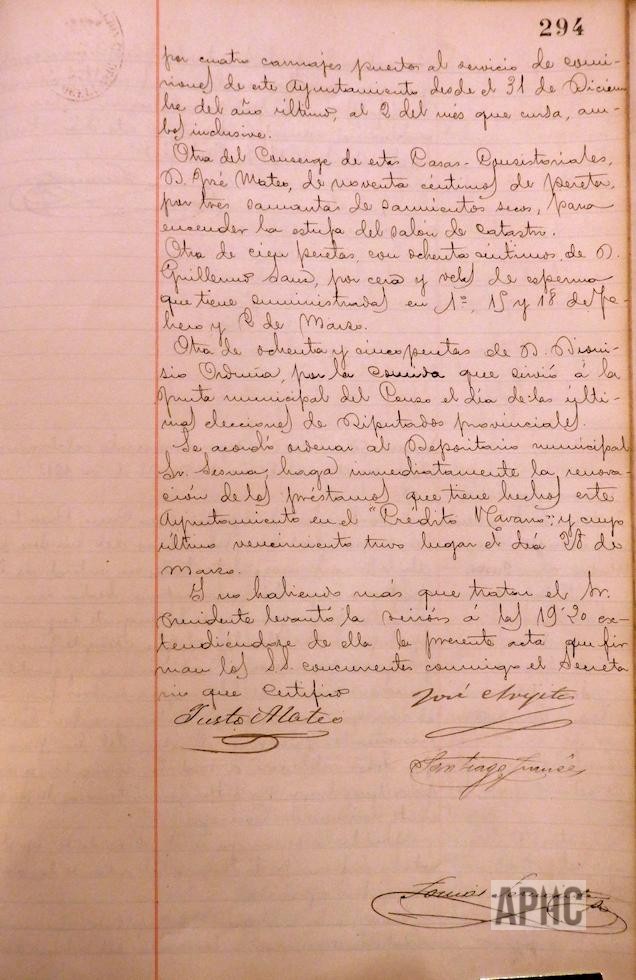 294
por cuatro carruajes puestos al servicio de comi-
siones de este Ayuntamiento desde el 31 de Diciem-
bre del año último, al 2 del mes que cursa, am-
bos inclusive.
Otra del Conserge de estas Casas-Consistoriales,
D. José Mateo, de noventa céntimos de peseta,
por tres samantas de sarmientos secos, para
encender la estufa del salón de catastro.
Otra de cien pesetas, con ochenta céntimos, de D.
Guillermo Sanz, por cera y velas de esperma
que tiene suministradas en 1º, 15 y 18 de Fe-
brero y 2 de Marzo.
Otra de ochenta y cinco pesetas de D. Dioni-
sio Orduña, por la comida que sirvió á la
Junta municipal del Censo el día de las últi-
mas elecciones de Diputados provinciales.
Se acordó ordenar al Depositario municipal
Sr. Sesma, haga inmediatamente la renova-
ción de los préstamos que tiene hechos este
Ayuntamiento en el "Crédito Navarro", y cuyo
último vencimiento tuvo lugar el día 28 de
Marzo.
Y no habiendo más que tratar el Sr.
Presidente levantó la sesión á las 19'20 ex-
tendiéndose de ella la presente acta que fir-
man los SS. concurrentes conmigo el Secreta
rio que certifico
Justo Mateo José
Santiago Francés
Tomás
APHC